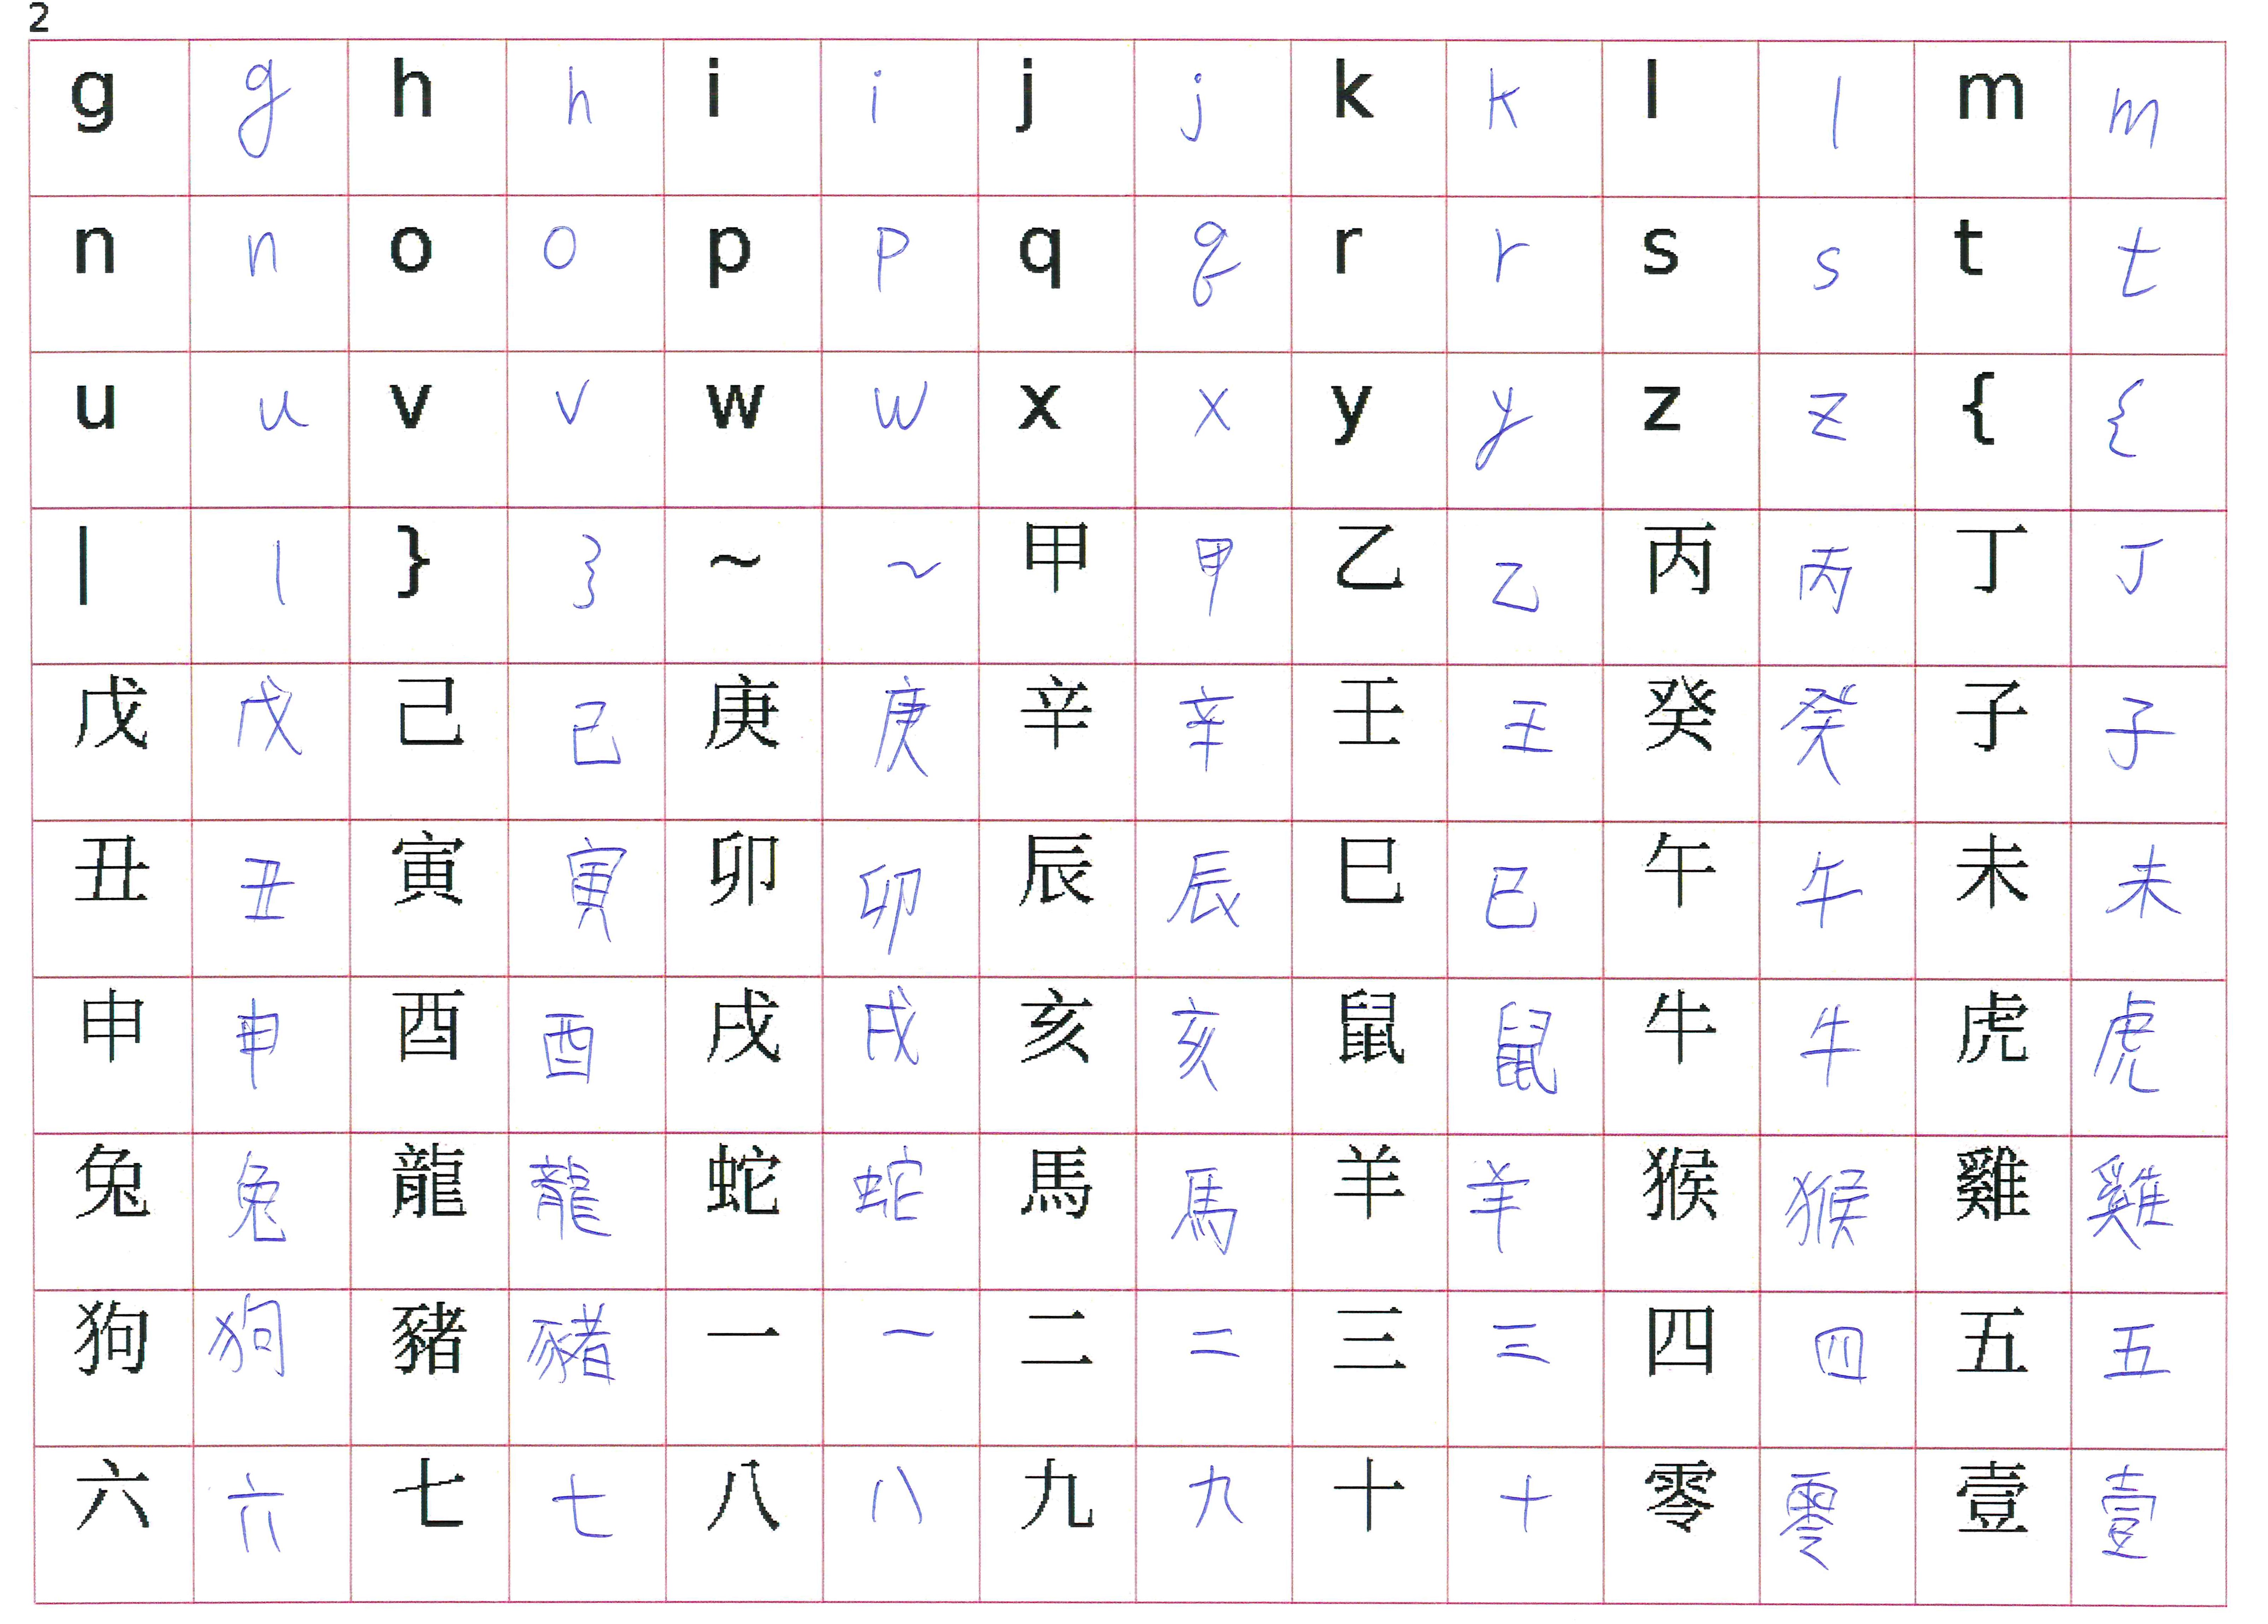 2
g g h h i i j j k k l l m m
n n o o p p q q r r s s t t
u u v v w w x x y y z z { {
| | } } ~ ~ 甲 甲 乙 乙 丙 丙 丁 丁
戊 戊 己 己 庚 庚 辛 辛 壬 壬 癸 癸 子 子
丑 丑 寅 寅 卯 卯 辰 辰 巳 巳 午 午 未 未
申 申 酉 酉 戌 戌 亥 亥 鼠 鼠 牛 牛 虎 虎
兔 兔 龍 龍 蛇 蛇 馬 馬 羊 羊 猴 猴 雞 雞
狗 狗 豬 豬 一 一 二 二 三 三 四 四 五 五
六 六 七 七 八 八 九 九 十 十 零 零 壹 壹